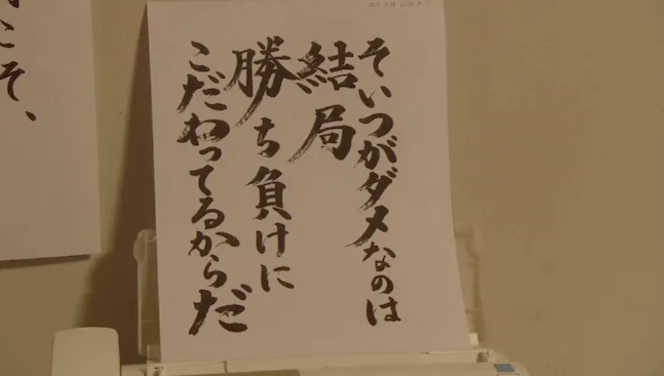 そいつがダメなのは
結局
勝ち負けに
こだわってるからだ
こそ、